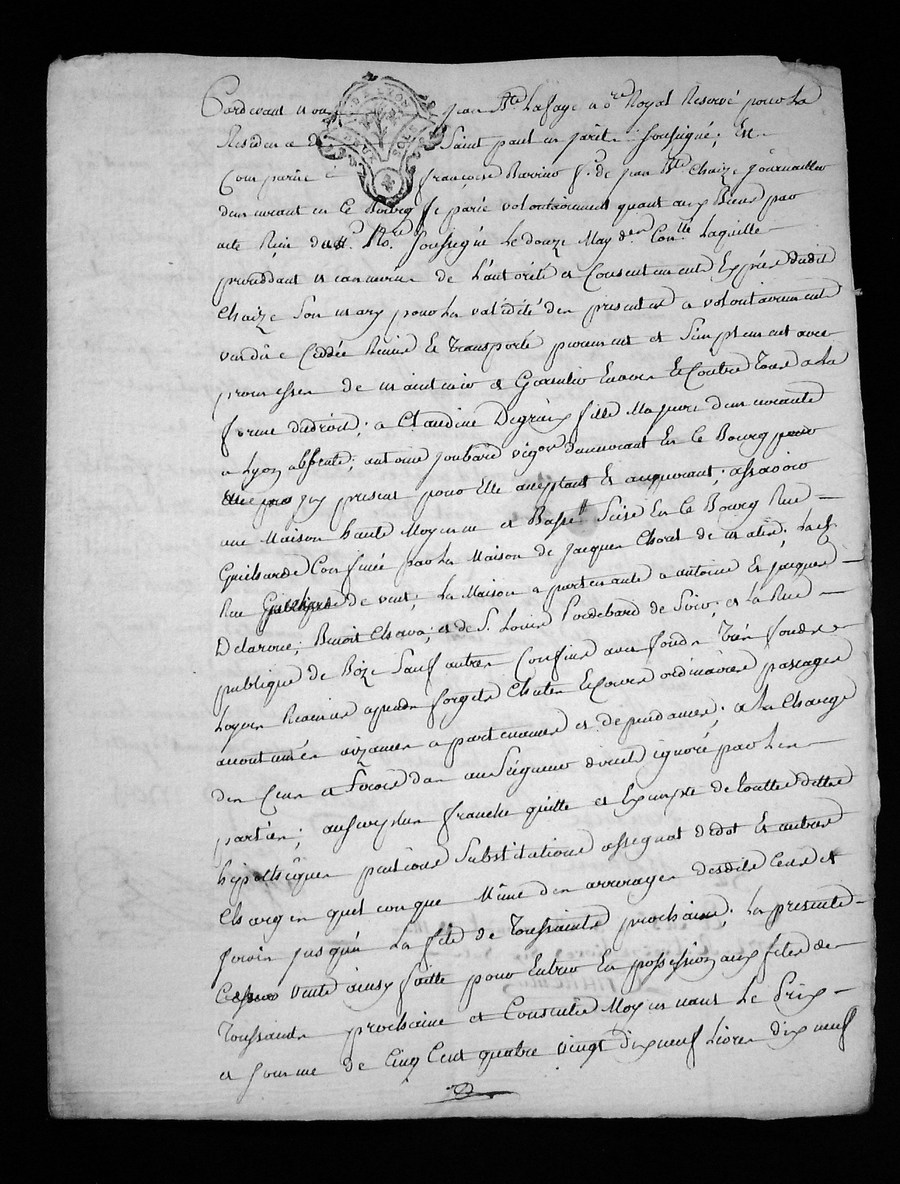 Pardevant nous jean Bte Lafaye nore Royal Reservé pour La
Residence de Saint paul en jaret soussigné; Est
Comparüe françoise Barriou fe. de jean Bte Chaize journaillier
demeurant en Ce Bourg separée volontairement quant aux Biens par
acte Reçu dud. Nore soussigné Le douze May der Conlle Laquelle
procedant en canmoins de L'autorité et Consentement Exprès dudit
Chaize son mary pour La validité des presentes a volontairement
vendüe Cedée Remise Et transporté purement et simplement avec
promesses de maintenir et Garentir Envers Et Contre tous a La
forme dudroit; a Claudine Degraix fille Majeure demeurante
a Lyon absente; antoine joubard vigon demeurant En Ce Bourg pour
Elle pour icy present pour Elle aceptant Et acquerant; assavoir
une Maison haute Moyenne et Basse Scise En Ce Bourg Rue
Guicharde Confinée par La Maison de jacques Chorel de matin; Lad.
Rue Guicharde de vent; La Maison apartenante a antoine Et jacques
Delaroue; Benoit Chava; et de S. Louis Pordebard de soir; et La Rue
publique de Bize Sauf autres Confins avec fonds très fonds
Loyers Racines apends forgets Chutes Et Cours ordinaires passages
acoutumés aizances apartenances et dependances; a La Charge
des Cens et servis dûs au Seigneur direct ignoré par Les
parties; ausurplus franche quitte et Exempte de touttes dettes
hipothèques pentions Substitutions assegnat de dot Et autres
Charges quelconque Même des arrerages desdits Cens et
servis jusqua La fête de toussaints prochaine; La presente
Cession vente ainsy faitte pour Entrer En possession aux fêtes de
toussaints prochaine et Consentie Moyennant Le Prix
et somme de Cinq Cent quatre vingt dix neuf Livres dix neuf